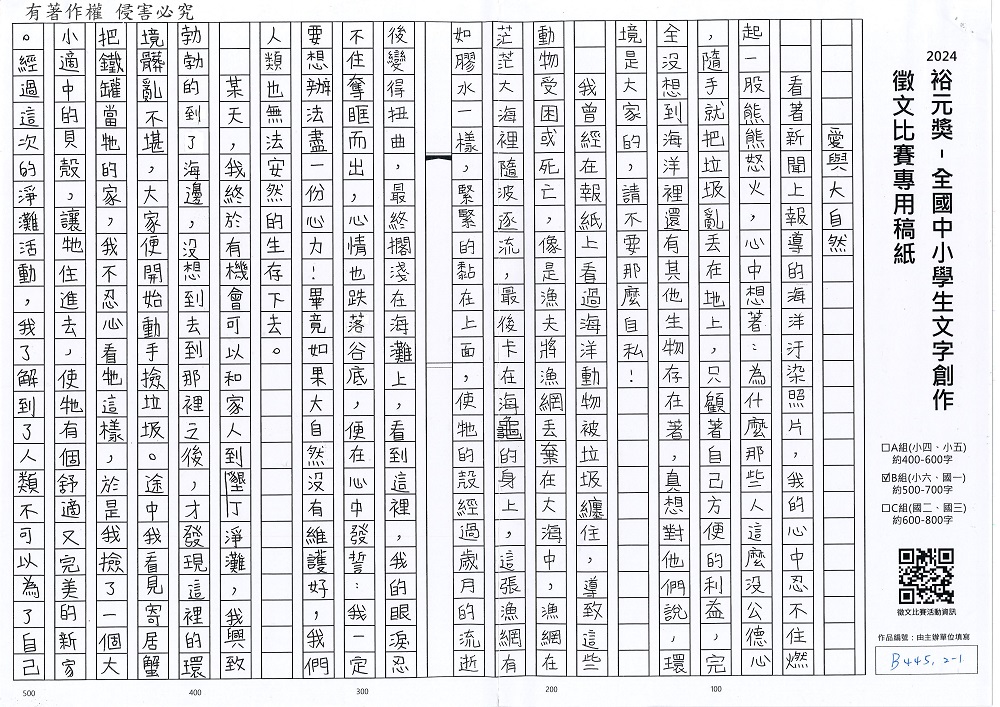 有著作權 侵害必究
2024
裕元獎-全國中小學生文字創作
徵文比賽專用稿紙
□A組(小四、小五)
約400-600字
☑B組(小六、國一)
約500-700字
□C組(國二、國三)
約600-800字
徵文比賽活動資訊
作品編號:由主辦單位填寫
B445, 2-1
愛與大自然
看著新聞上報導的海洋汙染照片,我的心中忍不住燃
起一股熊熊怒火,心中想著:為什麼那些人這麼沒公德心
,隨手就把垃圾亂丟在地上,只顧著自己方便的利益,完
全沒想到海洋裡還有其他生物存在著,真想對他們說,環
境是大家的,請不要那麼自私!
我曾經在報紙上看過海洋動物被垃圾纏住,導致這些
動物受困或死亡,像是漁夫將漁網丟棄在大海中,漁網在
茫茫大海裡隨波逐流,最後卡在海龜的身上,這張漁網有
如膠水一樣,緊緊的黏在上面,使牠的殼經過歲月的流逝
後變得扭曲,最終擱淺在海灘上,看到這裡,我的眼淚忍
不住奪眶而出,心情也跌落谷底,便在心中發誓:我一定
要想辦法盡一份心力!畢竟如果大自然沒有維護好,我們
人類也無法安然的生存下去。
某天,我終於有機會可以和家人到墾丁淨灘,我興致
勃勃的到了海邊,沒想到去到那裡之後,才發現這裡的環
境髒亂不堪,大家便開始動手撿垃圾。途中我看見寄居蟹
把鐵罐當牠的家,我不忍心看牠這樣,於是我撿了一個大
小適中的貝殼,讓牠住進去,使牠有個舒適又完美的新家
。經過這次的淨灘活動,我了解到了人類不可以為了自己
100
200
300
400
500